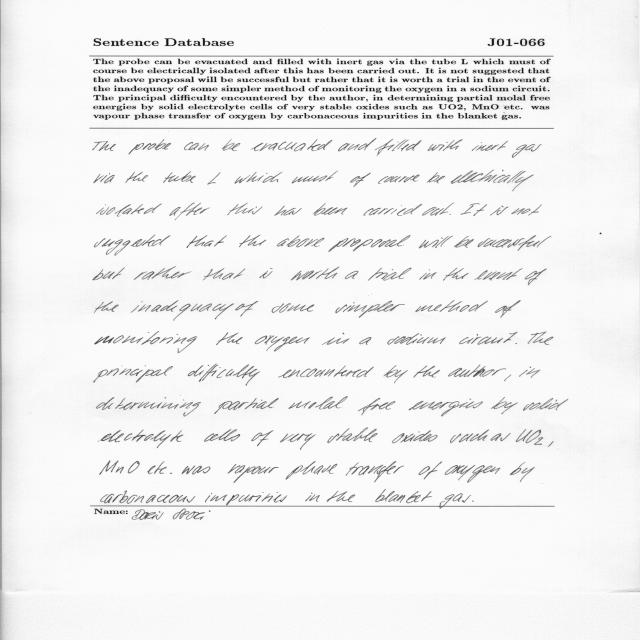 Sentence Database J01-066
The probe can be evacuated and filled with inert gas via the tube L which must of
course be electrically isolated after this has been carried out. It is not suggested that
the above proposal will be successful but rather that it is worth a trial in the event of
the inadequacy of some simpler method of monitoring the oxygen in a sodium circuit.
The principal difficulty encountered by the author, in determining partial molal free
energies by solid electrolyte cells of very stable oxides such as UO2, MnO etc. was
vapour phase transfer of oxygen by carbonaceous impurities in the blanket gas.
The probe can be evacuated and filled with inert gas
via the tube L which must of course be electrically
isolated after this has been carried out. It is not
suggested that the above proposal will be successful
but rather that is worth a trial in the event of
the inadequacy of some simpler method of
monitoring the oxygen in a sodium circuit. The
principal difficulty encountered by the author, in
determining partial molal free energies by solid
electrolyte cells of very stable oxides such as UO2,
MnO etc. was vapour phase transfer of oxygen by
carbonaceous impurities in the blanket gas.
Name: